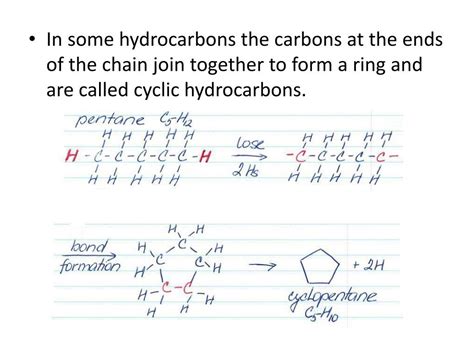 • In some hydrocarbons the carbons at the ends
of the chain join together to form a ring and
are called cyclic hydrocarbons.
pentane C5-H12
H H H H H
H-C-C-C-C-C-H
H H H H H
lose
2Hs
H H H H H
-C-C-C-C-C-
H H H H H
bond
formation
H H
H C H
H C C H
H-C-C-H
H H
+ 2H
cyclopentane
C5-H10